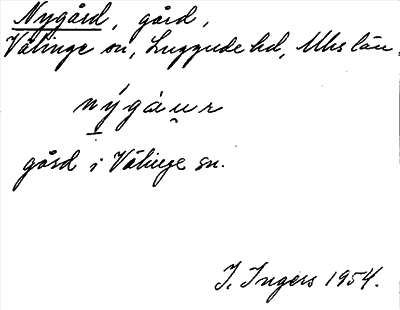 Nygård, gård,
Välinge sn, Luggude hd, Mhs län.
nýgáu̯r
gård i Välinge sn.
I. Ingers 1954.